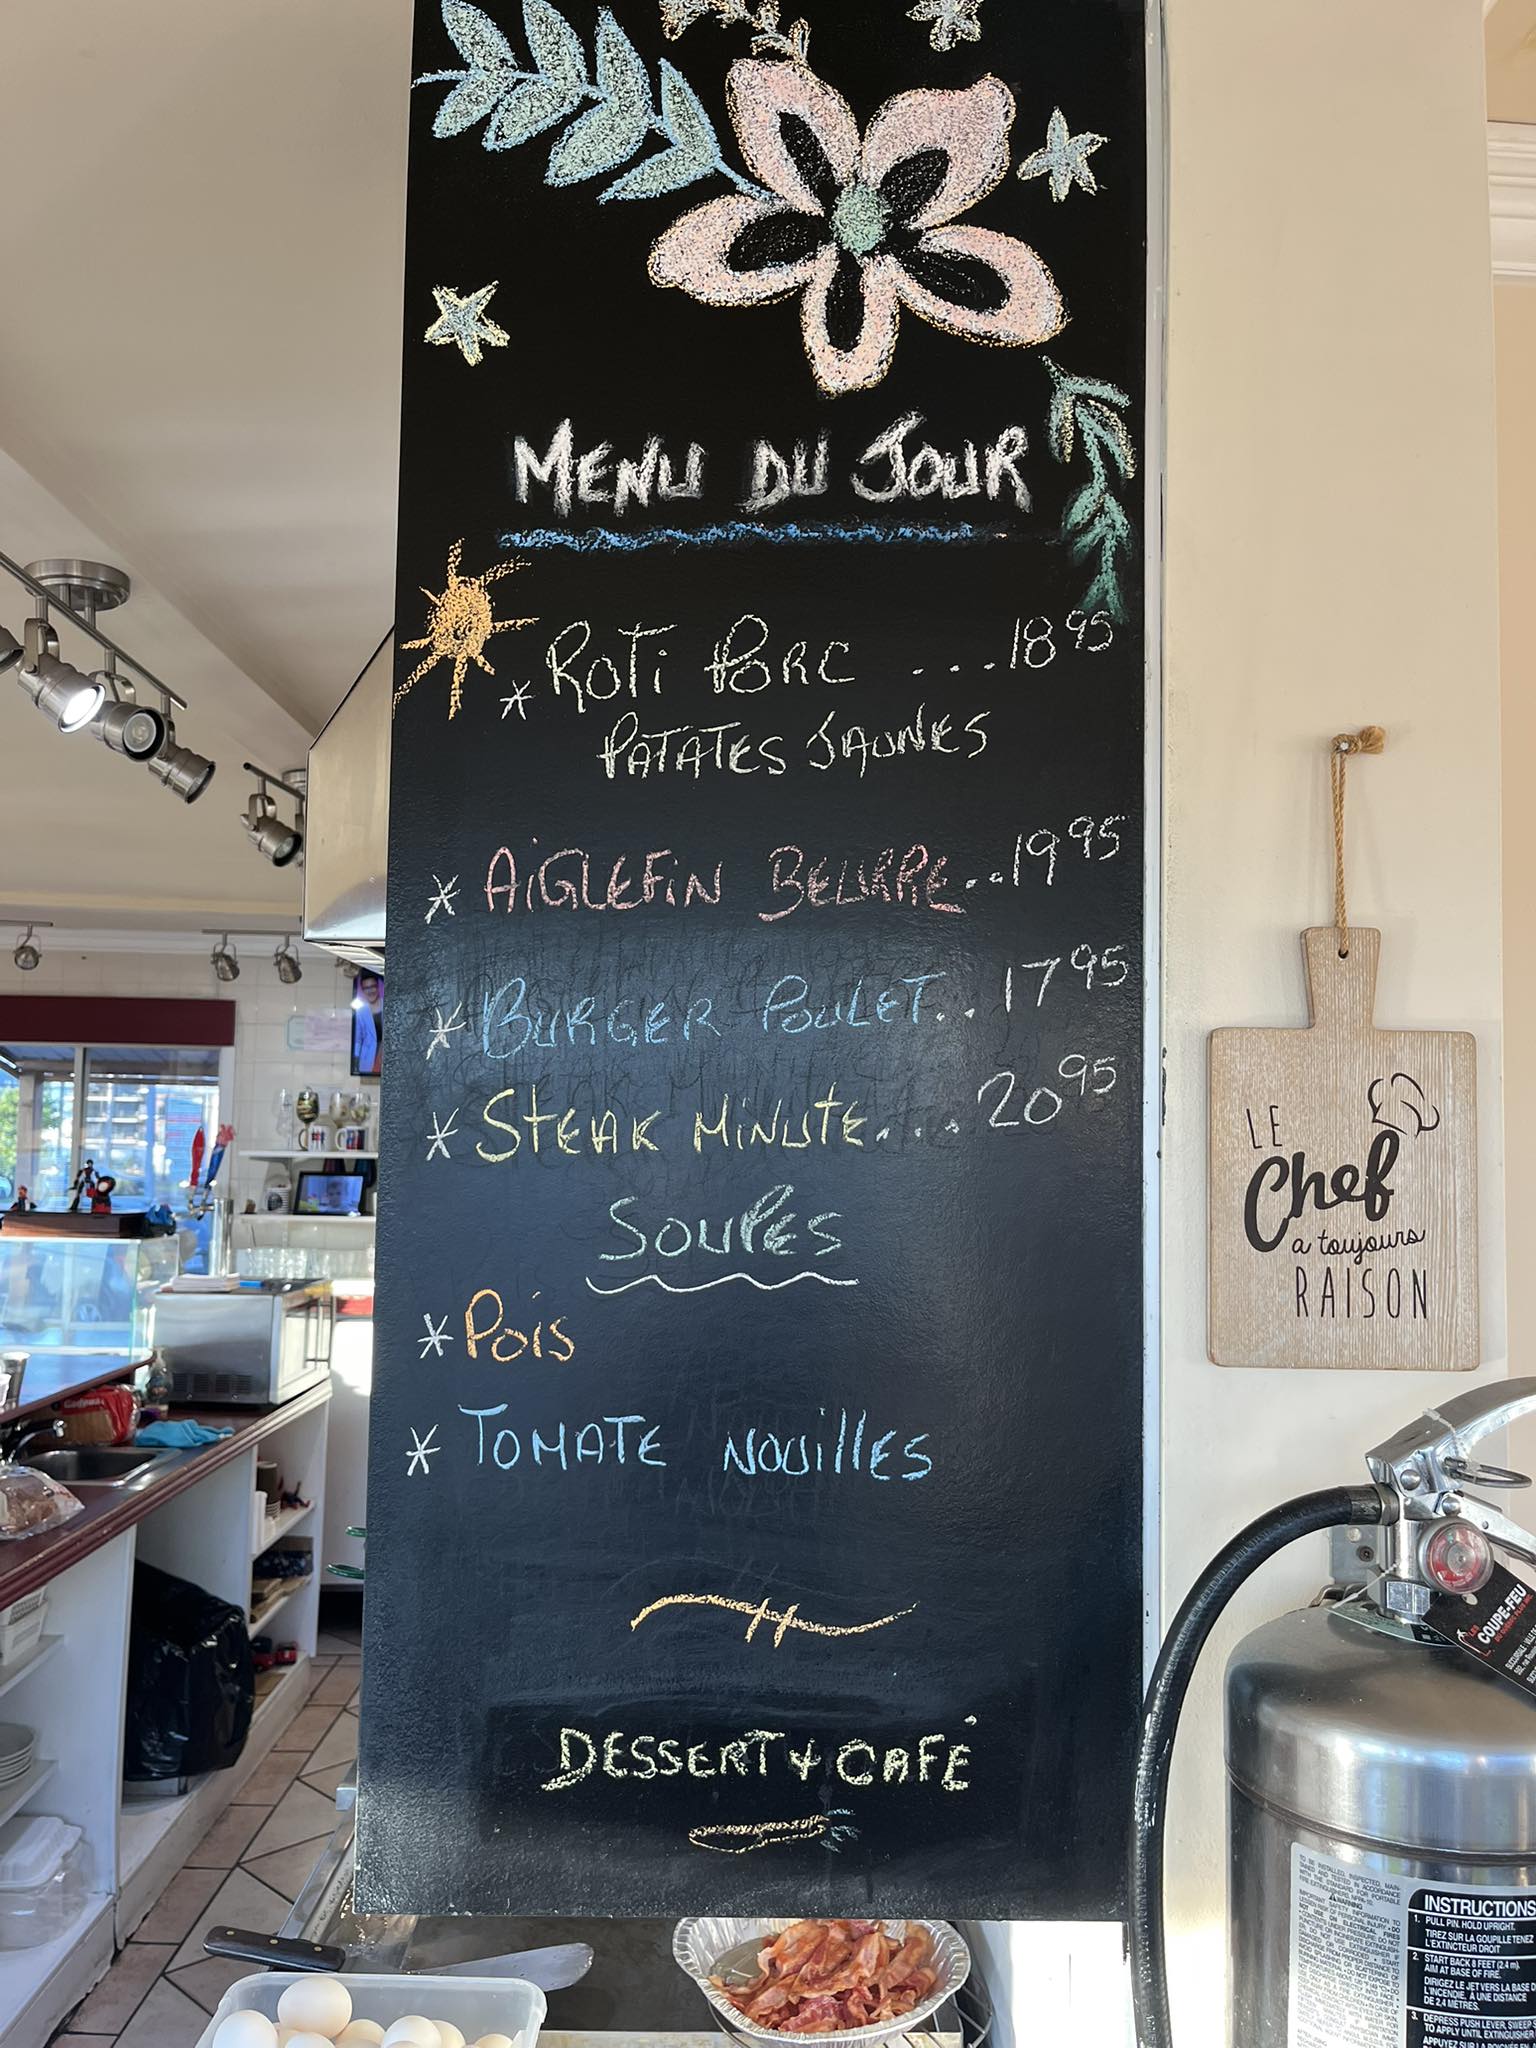 MENU DU JOUR
* ROTI PORC ....18 95
PATATES JAUNES
* AIGLEFIN BEURRE..19 95
* BURGER POULET..17 95
* STEAK MINUTE....20 95
SOUPES
* POIS
* TOMATE NOUILLES
DESSERT + CAFÉ
LE
Chef
a toujours
RAISON
COUPE-FEU
INSTRUCTIONS
1. PULL PIN. HOLD UPRIGHT.
TIREZ SUR LA GOUPILLE TENEZ
L'EXTINCTEUR DROIT
2. START BACK 8 FEET (2.4 m).
AIM AT BASE OF FIRE.
DIRIGEZ LE JET VERS LA BASE D
L'INCENDIE, À UNE DISTANCE
DE 2,4 MÈTRES.
3. DEPRESS PUSH LEVER, SWEEP S
TO APPLY UNTIL EXTINGUISHER